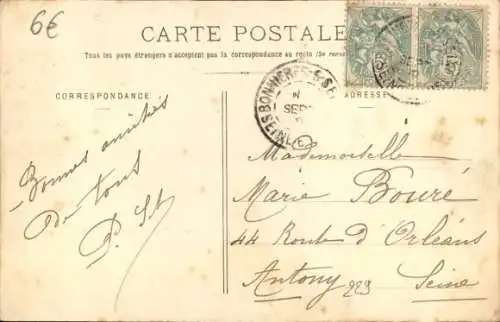 6€
CARTE POSTALE
Tous les pays étrangers n'acceptent pas la correspondance au recto (Se
CORRESPONDANCE
ADRESSE
BONNIERES-S-SEI
SEPT
SEINE
Bonnes amitiés
de tous
P. St
Mademoiselle
Marie Bouré
44 Route d'Orléans
Antony 229 Seine